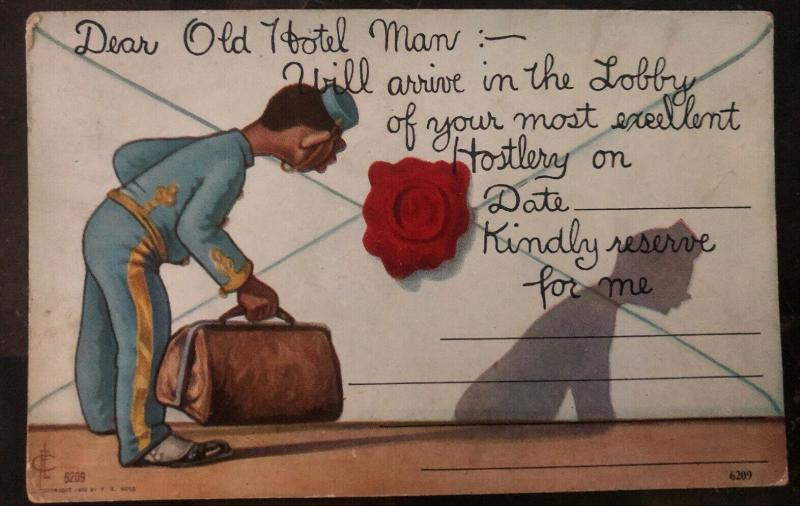 Dear Old Hotel Man :—
Will arrive in the Lobby
of your most excellent
Hostlery on
Date
Kindly reserve
for me
6209
6209